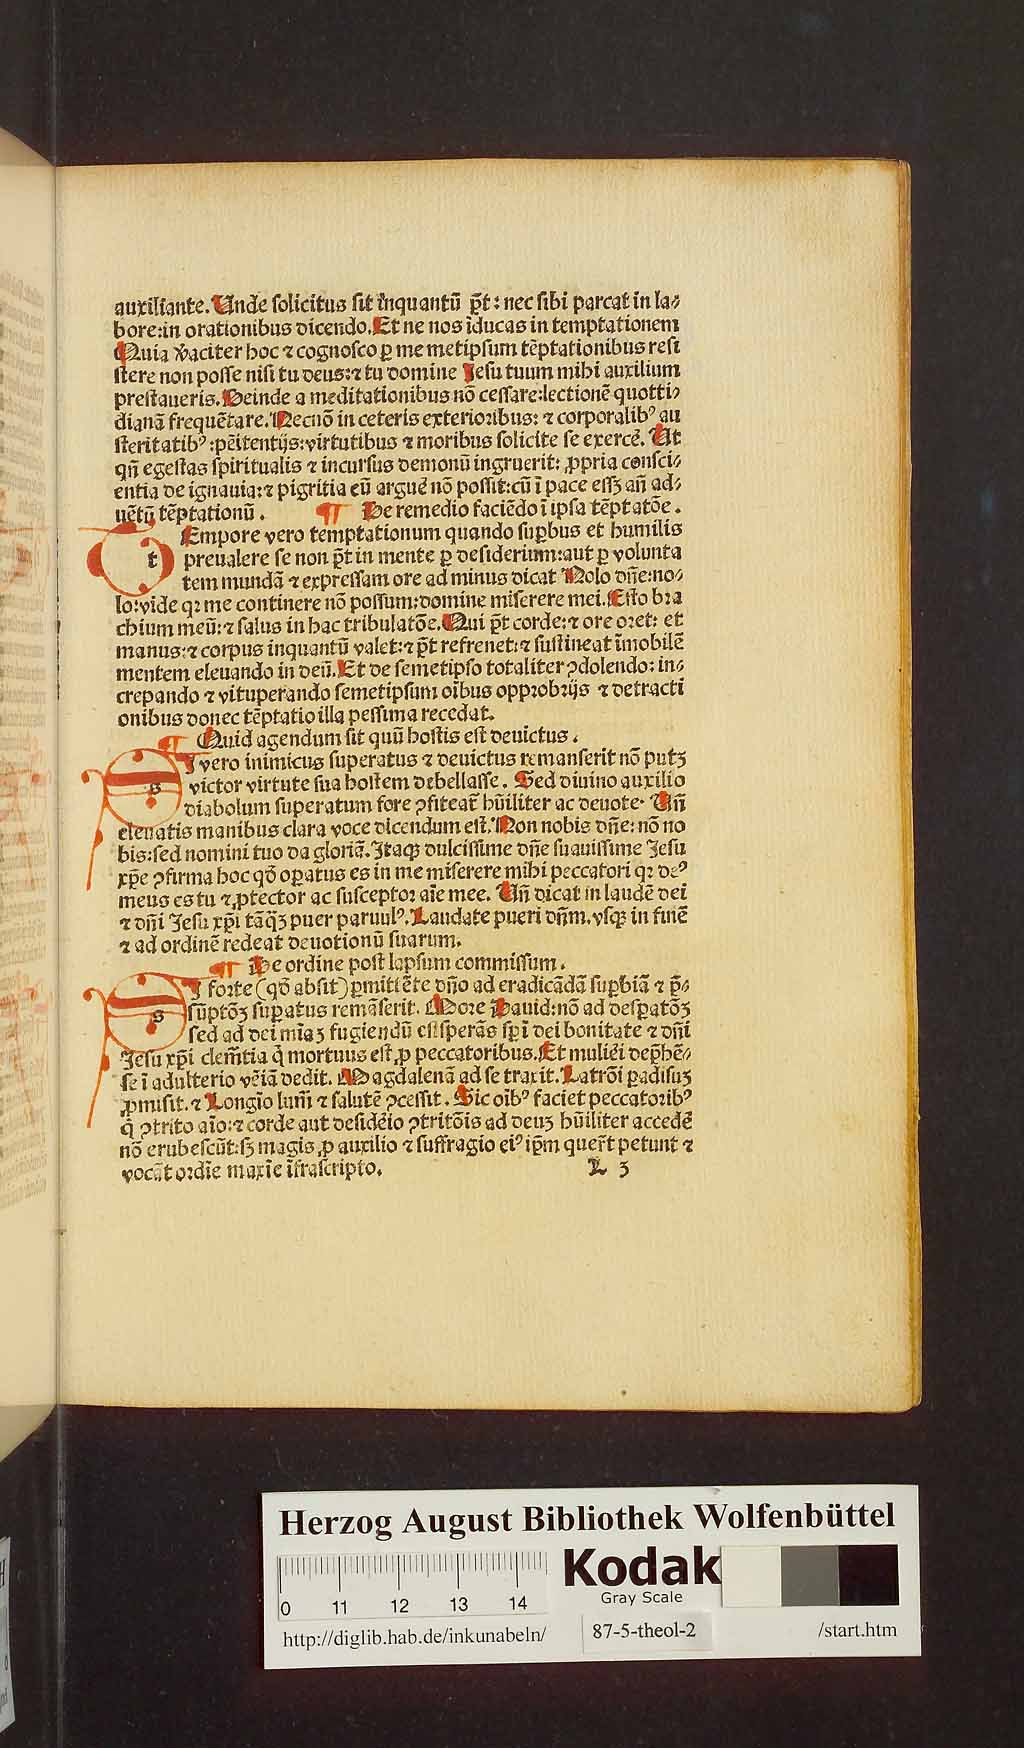 auxiliante. Unde solicitus sit inquantū p̄t: nec sibi parcat in la⸗
bore: in orationibus dicendo. Et ne nos īducas in temptationem
Quia v̄aciter hoc ⁊ cognosco ꝑ me metipsum tēptationibus resi
stere non posse nisi tu deus: ⁊ tu domine Jesu tuum mihi auxilium
prestaueris. Deinde a meditationibus nō cessare: lectionē quotti⸗
dianā frequētare. Necnō in ceteris exterioribus: ⁊ corporalibꝰ au
steritatibꝰ: pēitentijs: virtutibus ⁊ moribus solicite se exercē. Ut
qn̄ egestas spiritualis ⁊ incursus demonū ingruerit: ꝓpria consci⸗
entia de ignauia: ⁊ pigritia eū arguē nō possit: cū ī pace essꝫ an̄ ad⸗
uētū tēptationū. ¶ De remedio faciēdo ī ipsa tēptatōe.
tEmpore vero temptationum quando suꝑbus et humilis
preualere se non p̄t in mente ꝑ desiderium: aut ꝑ volunta
tem mundā ⁊ expressam ore ad minus dicat Nolo dn̄e: no⸗
lo: vide qꝛ me continere nō possum: domine miserere mei. Esto bra
chium meū: ⁊ salus in hac tribulatōe. Qui p̄t corde: ⁊ ore oret: et
manus: ⁊ corpus inquantū valet: ⁊ p̄t refrenet: ⁊ sustineat īmobilē
mentem eleuando in deū. Et de semetipso totaliter ꝯdolendo: in⸗
crepando ⁊ vituperando semetipsum oībus opprobrijs ⁊ detracti
onibus donec tēptatio illa pessima recedat.
¶ Quid agendum sit quū hostis est deuictus.
sI vero inimicus superatus ⁊ deuictus remanserit nō putꝫ
victor virtute sua hostem debellasse. Sed diuino auxilio
diabolum superatum fore ꝯfiteat̄ hūiliter ac deuote. Un̄
eleuatis manibus clara voce dicendum est. Non nobis dn̄e: nō no
bis: sed nomini tuo da gloriā. Itaqꝫ dulcissime dn̄e suauissime Jesu
xp̄e ꝯfirma hoc qō oꝑatus es in me miserere mihi peccatori qꝛ deꝰ
meus es tu ⁊ ꝓtector ac susceptor aīe mee. Un̄ dicat in laudē dei
⁊ dn̄i Jesu xp̄i tāqꝫ puer paruulꝰ. Laudate pueri dn̄m. vsqꝫ in finē
⁊ ad ordinē redeat deuotionū suarum.
¶ De ordine post lapsum commissum.
sI forte (qō absit) ꝑmittēte dn̄o ad eradicādā suꝑbiā ⁊ p̄⸗
sūptōꝫ suꝑatus remāserit. More Dauid: nō ad desꝑatōꝫ
sed ad dei mīaꝫ fugiendū est sperās sp̄i dei bonitate ⁊ dn̄i
Jesu xp̄i clem̄tia q̄ mortuus est ꝓ peccatoribus. Et muliēi dep̄hē⸗
se ī adulterio vēiā dedit. Magdalenā ad se traxit. Latrōi ꝑadisuꝫ
ꝓmisit. ⁊ Longīo lum̄ ⁊ salutē ꝯcessit. Sic oībꝰ faciet peccatoribꝰ
q̄ ꝯtrito aīo: ⁊ corde aut desidēio ꝯtritōis ad deuꝫ hūiliter accedē
nō erubescūt: sꝫ magis ꝓ auxilio ⁊ suffragio eiꝰ ip̄m quer̄t petunt ⁊
vocāt ordīe maxīe īfrascripto.
L 3
Herzog August Bibliothek Wolfenbüttel
Kodak
Gray Scale
0 11 12 13 14
http://diglib.hab.de/inkunabeln/ 87-5-theol-2 /start.htm